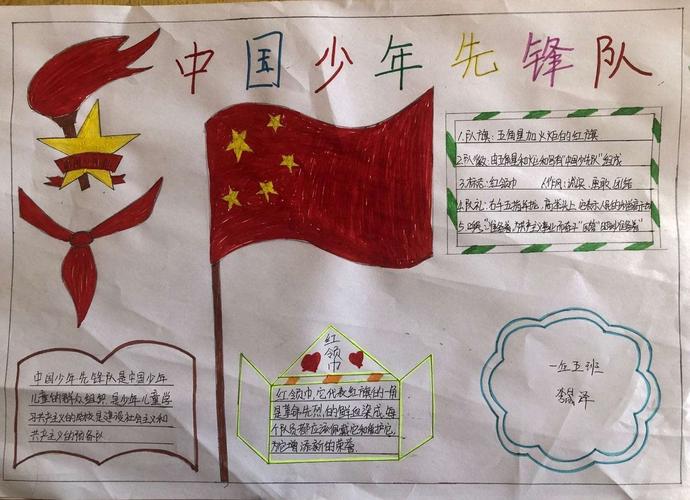 中国少年先锋队
1.队旗：五角星加火炬的红旗
2.队徽：由五角星和火炬和写有"中国少先队"组成
3.标志：红领巾 作风：诚实、勇敢、团结
4.队礼：右手五指并拢，高举头上，它表示人民的利益高于
5.口号："准备着，为共产主义事业而奋斗""时刻准备着"
中国少年先锋队是中国少年
儿童的群众组织，是少年儿童学
习共产主义的学校是建设社会主义和
共产主义的预备队
红领巾
红领巾，它代表红旗的一角
是革命先烈的鲜血染成，每
个队员都应该佩戴它和维护它
为它增添新的荣誉.
一年五班
李 泽